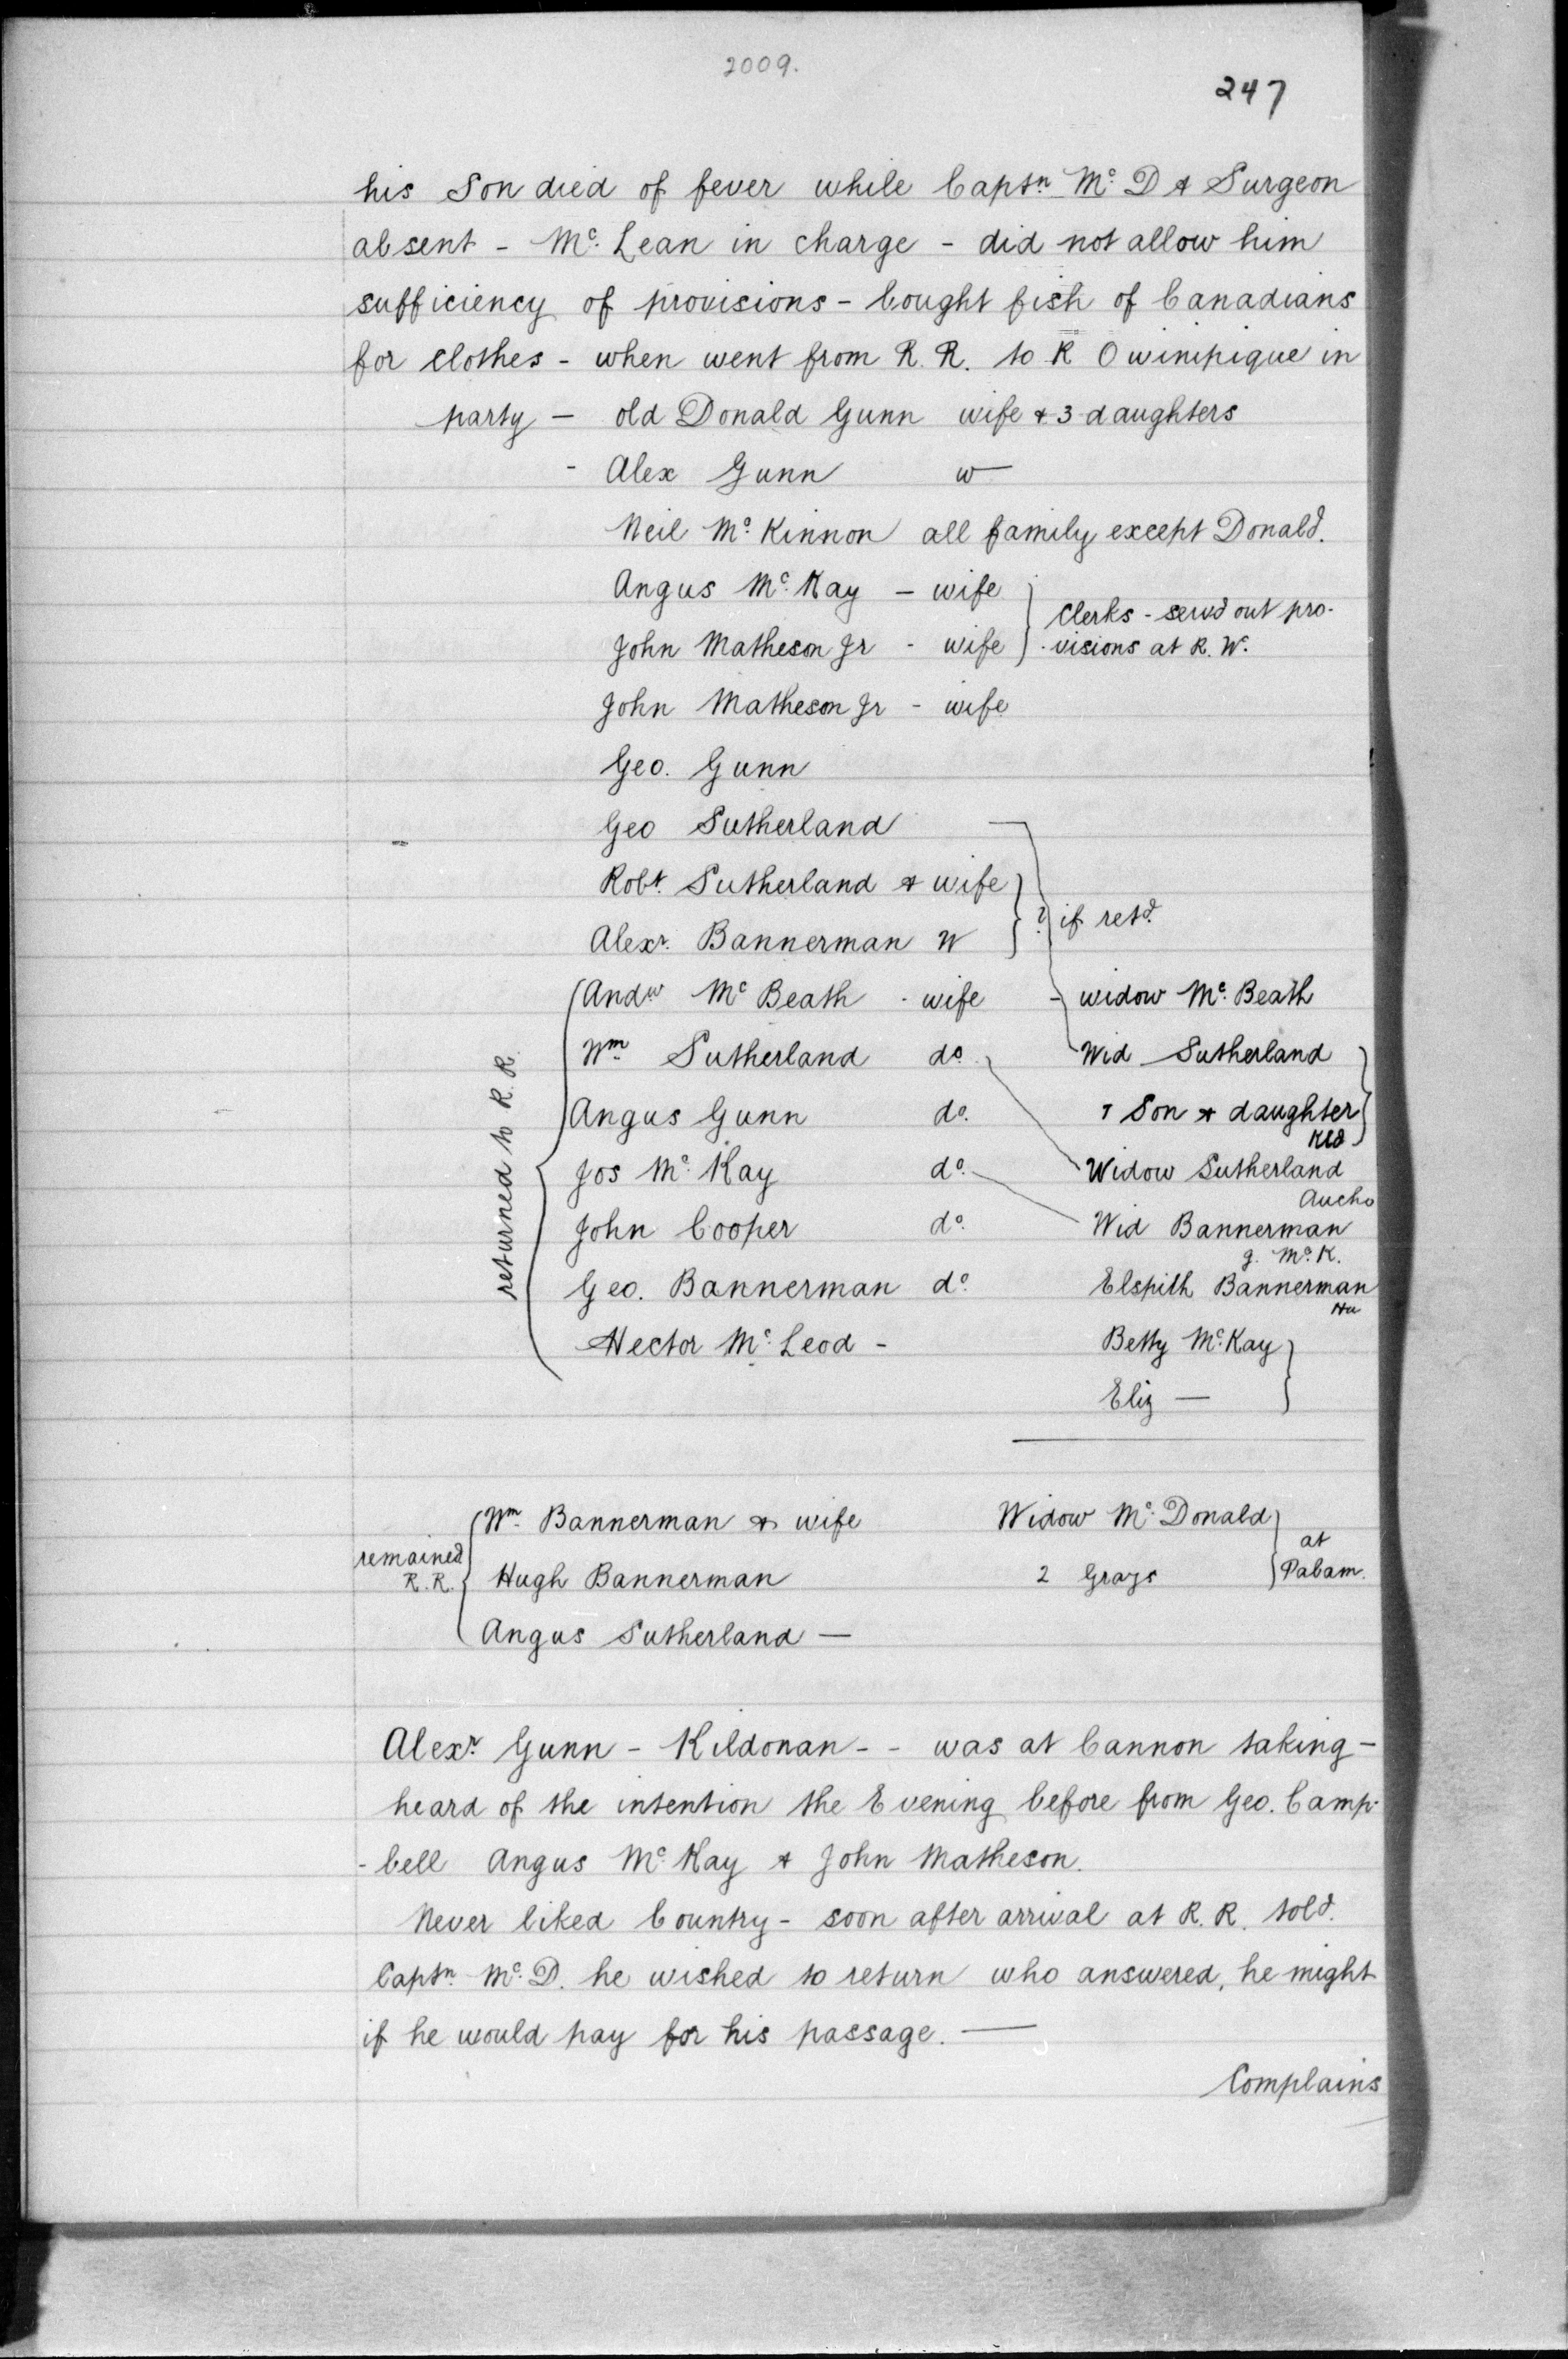 2009.
247
his Son died of fever while Captn. Mc. D & Surgeon
absent - Mc. Lean in charge - did not allow him
sufficiency of provisions - bought fish of Canadians
for clothes - when went from R. R. to R Owinipique in
party - old Donald Gunn wife & 3 daughters
- Alex Gunn w—
Neil Mc. Kinnon all family except Donald.
Angus Mc. Kay - wife
Clerks - servd out pro-
John Matheson Jr - wife
-visions at R. W.
John Matheson Jr - wife
Geo. Gunn
Geo Sutherland
Robt. Sutherland & wife
? if retd.
Alexr. Bannerman W
returned to R. R.
Andw Mc Beath - wife - widow Mc. Beath
Wm. Sutherland do. Wid Sutherland
Angus Gunn do. 1 Son & daughter
Kld
Jos Mc. Kay do. Widow Sutherland
Aucho
John Cooper do. Wid Bannerman
g. Mc. K.
Geo. Bannerman do. Elspith Bannerman
Hector Mc. Leod - Betty Mc. Kay
Eliz —
Wm. Bannerman & wife Widow Mc. Donald
remained R. R.
at Pabam.
Hugh Bannerman 2 Grays
Angus Sutherland —
Alexr. Gunn - Kildonan - - was at Cannon taking -
heard of the intention the Evening before from Geo. Camp-
-bell Angus Mc. Kay & John Matheson.
Never liked Country - soon after arrival at R. R. told.
Captn. Mc. D. he wished to return who answered, he might
if he would pay for his passage. —
Complains